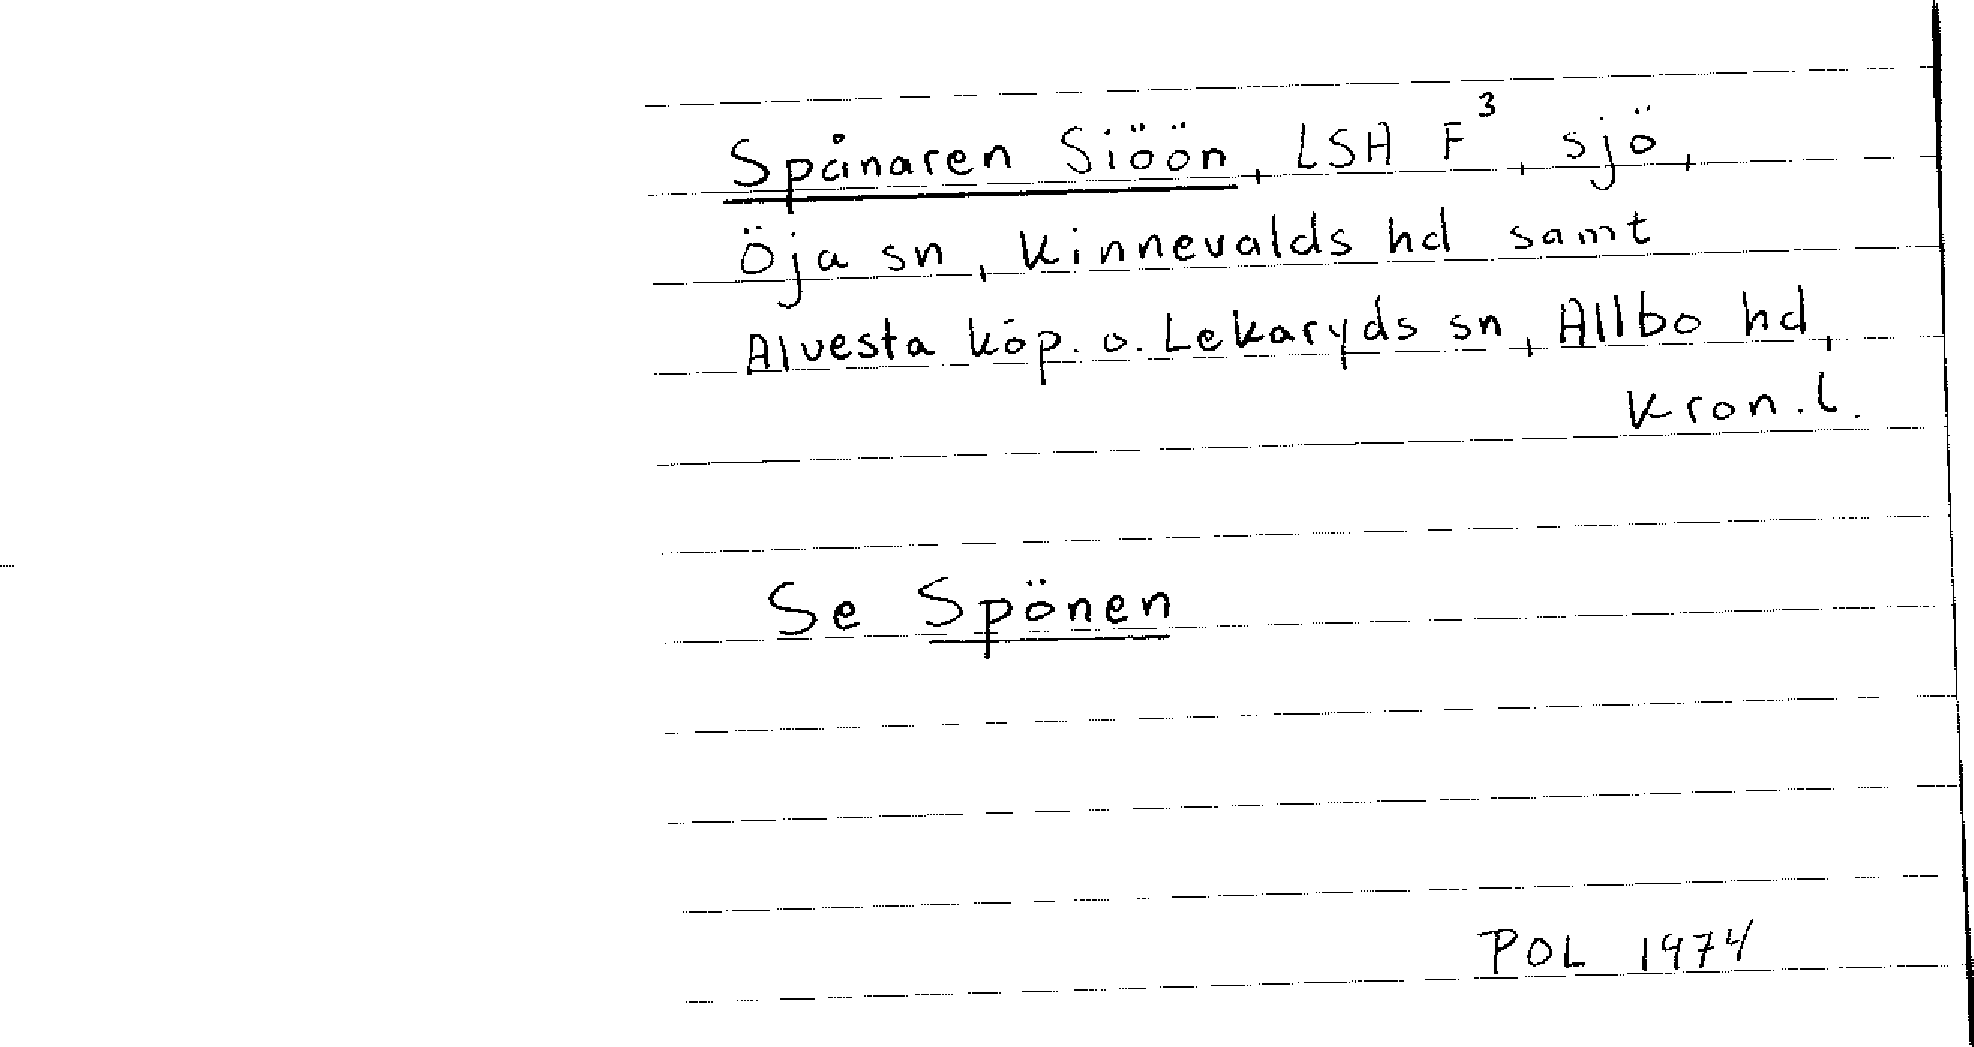 Spånaren Siöön, LSA F³, sjö,
Öja sn, Kinnevalds hd samt
Alvesta köp. o. Lekaryds sn, Allbo hd,
Kron.l.
Se Spönen
POL 1974